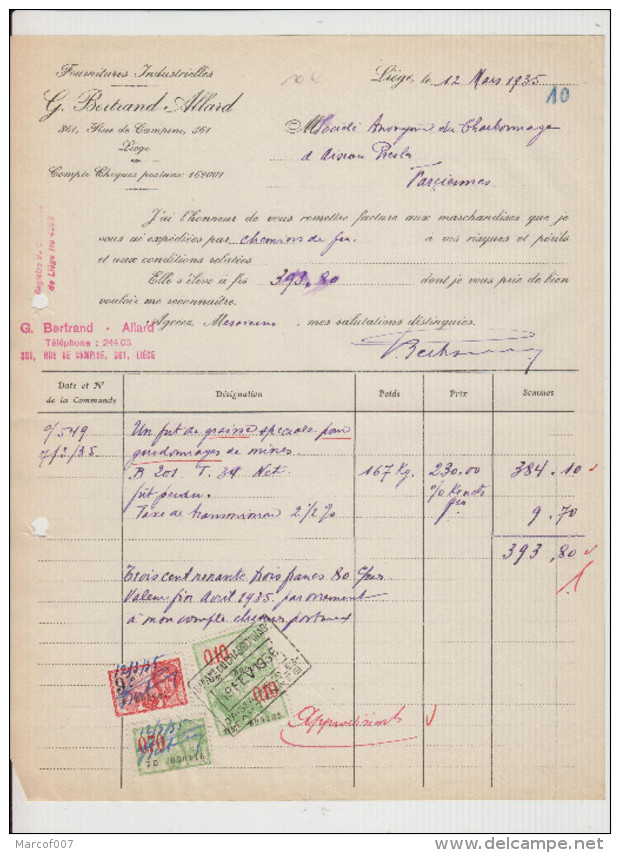 Fournitures Industrielles
G. Bertrand-Allard
361, Rue de Campine, 361
Liége
Compte Chèques postaux: 168001
Liége, le 12 Mars 1935
10
M Société Anonyme du Charbonnage
d'Aiseau Presles
Farciennes
J'ai l'honneur de vous remettre facture aux marchandises que je
vous ai expédiées par chemin de fer à vos risques et périls
et aux conditions relatées
Elle s'élève à frs 393.80 dont je vous prie de bien
vouloir me reconnaître.
Agréez, Messieurs, mes salutations distinguées.
G. Bertrand - Allard
Téléphone : 244.03
361, RUE DE CAMPINE, 361, LIÉGE
Date et N° de la Commande Désignation Poids Prix Sommes
o/549 Un fût de graisse spéciale pour
7/2/35 guidonnages de mines
B 201 T. 39 Net 167 Kg. 230.00 384.10
fût perdu. %
Taxe de transmission 2½% 9.70
393,80
Trois cent nonante trois francs 80 cmes
Valeur fin Avril 1935 par virement
à mon compte chèques postaux
12/3/35
0,10
0,10
12/3/35
0,70
Marcof007
www.delcampe.net